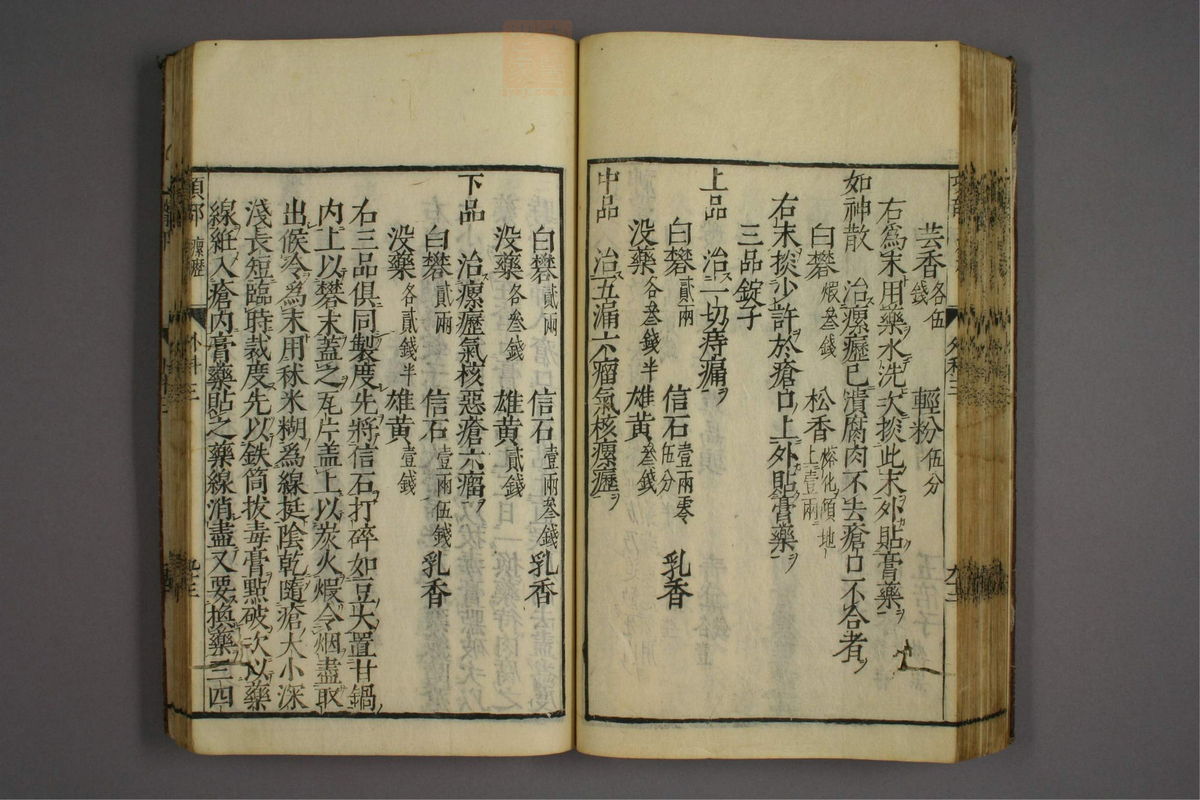 芸香各伍錢 輕粉伍分
右爲末用藥水洗次摻此末外貼膏藥
如神散 治瘰癧已潰腐肉不去瘡口不合者
白礬煆叁錢 松香熔化傾地上壹兩
右末摻少許於瘡口上外貼膏藥
三品錠子
上品 治一切痔漏
白礬貳兩 信石壹兩零伍分 乳香
没藥各叁錢半 雄黃叁錢
中品 治五漏六瘤氣核瘰癧
白礬貳兩 信石壹兩叁錢 乳香
没藥各叁錢 雄黃貳錢
下品 治瘰癧氣核惡瘡六瘤
白礬貳兩 信石壹兩伍錢 乳香
没藥各貳錢半 雄黃壹錢
右三品俱同製度先將信石打碎如豆大置甘鍋
内上以礬末蓋之瓦片盖上以炭火煆令烟盡取
出候冷為末用秫米糊為線挺陰乾隨瘡大小深
淺長短臨時裁度先以鉄筒拔毒膏㸃破次以藥
線紝入瘡内膏藥貼之藥線消盡又要換藥三四
項部 瘰癧 外科三